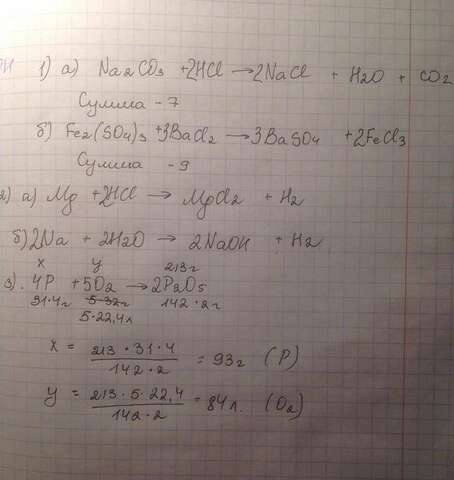 1) а) Na2CO3 + 2HCl → 2NaCl + H2O + CO2
Сумма - 7
б) Fe2(SO4)3 + 3BaCl2 → 3BaSO4 + 2FeCl3
Сумма - 9
2) а) Mg + 2HCl → MgCl2 + H2
б) 2Na + 2H2O → 2NaOH + H2
x y 213г
3). 4P + 5O2 → 2P2O5
31·4г 5·32г 142·2г
5·22,4л
x = 213·31·4 / 142·2 = 93г (P)
y = 213·5·22,4 / 142·2 = 84л. (O2)